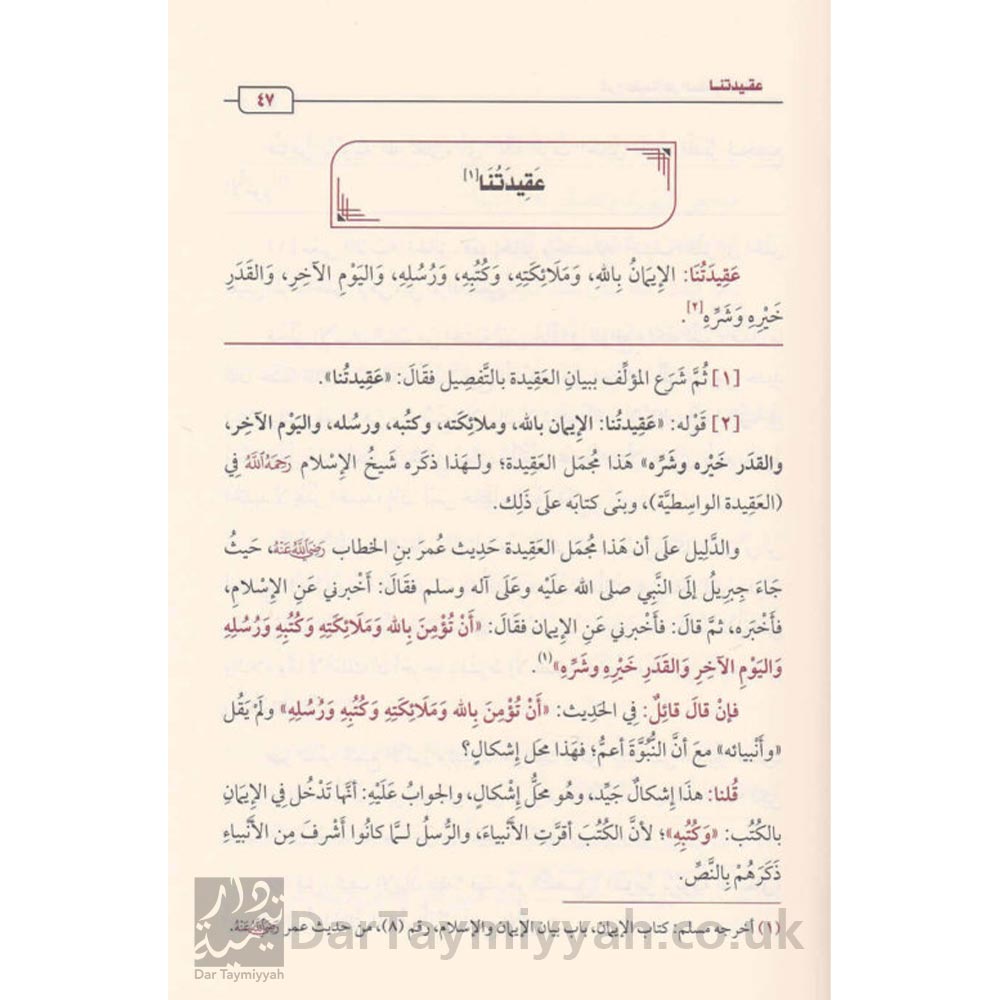 عقيدتنا
٤٧
عَقِيدَتُنَا[١]
عَقِيدَتُنَا: الإِيمَانُ بِاللهِ، وَمَلَائِكَتِهِ، وَكُتُبِهِ، وَرُسُلِهِ، وَاليَوْمِ الآخِرِ، وَالقَدَرِ
خَيْرِهِ وَشَرِّهِ[٢].
[١] ثُمَّ شَرَع المؤلِّف ببيانِ العَقِيدة بالتَّفصِيل فقَالَ: «عَقِيدتُنا».
[٢] قَوْله: «عَقِيدتُنا: الإِيمَان بالله، وملائِكته، وكتُبه، ورسُله، واليَوْم الآخِر،
والقدَر خَيْره وشَرِّه» هَذَا مُجمَل العَقِيدة؛ ولـهَذا ذكَره شَيخُ الإِسْلام رَحِمَهُ اللَّهُ فِي
(العَقِيدة الواسِطيَّة)، وبنَى كتابَه علَى ذَلِك.
والدَّلِيل علَى أن هَذَا مُجمَل العَقِيدة حَدِيث عُمرَ بنِ الخطاب رَضِيَ اللَّهُ عَنْهُ، حَيثُ
جَاءَ جِبرِيلُ إلَى النَّبِي صلى الله علَيْه وعَلَى آله وسلم فقَالَ: أَخْبرني عَنِ الإِسْلامِ،
فأَخْبَره، ثمَّ قالَ: فأَخْبرني عَنِ الإِيمان فقَالَ: «أَنْ تُؤْمِنَ بِالله وَمَلَائِكَتِهِ وَكُتُبِهِ وَرُسُلِهِ
وَاليَوْمِ الآخِرِ وَالقَدَرِ خَيْرِهِ وشَرِّهِ»(١).
فإنْ قالَ قائِلٌ: فِي الحَدِيث: «أَنْ تُؤْمِنَ بِالله وَمَلَائِكَتِهِ وَكُتُبِهِ وَرُسُلِهِ» ولَمْ يَقُل
«وأَنْبيائه» معَ أنَّ النُّبوَّةَ أعمُّ؛ فهَذا محَل إشكالٍ؟
قُلنا: هذَا إشكالٌ جَيِّد، وهُو محَلُّ إشْكالٍ، والجوابُ عَلَيْهِ: أنَّها تَدْخُل فِي الإِيمَانِ
بالكتُب: «وَكُتُبِهِ»؛ لأنَّ الكتُبَ أقرَّتِ الأَنْبياءَ، والرُّسلُ لـمَّا كانُوا أَشْرفَ مِن الأَنْبياءِ
ذكَرَهُمْ بِالنَّصِّ.
(١) أخرجه مسلم: كتاب الإيمان، باب بيان الإيمان والإسلام، رقم (٨)، من حديث عمر رَضِيَ اللَّهُ عَنْهُ.
Dar Taymiyyah
DarTaymiyyah.co.uk